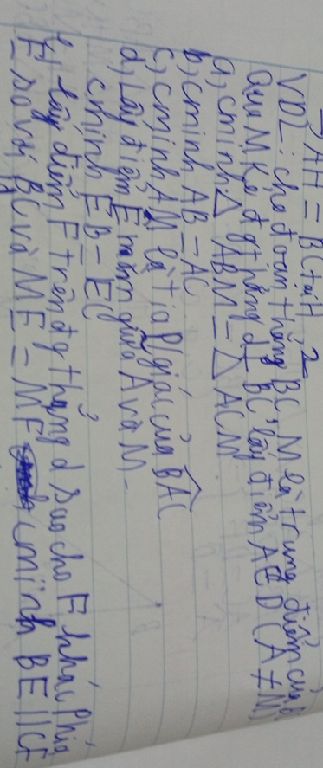 → AH = BC tại H
VD2: cho đoạn thẳng BC, M là trung điểm của B
Qua M kẻ đg thẳng d ⊥ BC, lấy điểm A ∈ D (A ≠ M)
a, cminh Δ ABM = Δ ACM
b, cminh AB = AC
c, cminh AM là tia p/giác của BAC
d, Lấy điểm E nằm giữa A và M.
cminh EB = EC
lấy điểm F trên đg thẳng d sao cho F khác phía
E so với BC và ME = MF cminh BE // CF